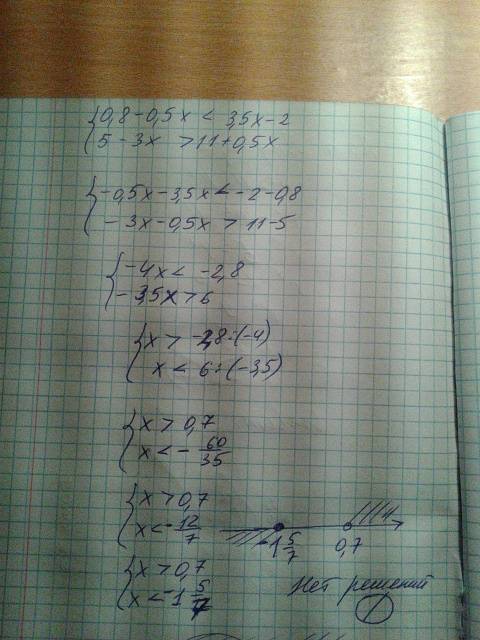 {0,8-0,5x < 3,5x-2
{5 - 3x > 11+0,5x
{-0,5x-3,5x < -2-0,8
{-3x-0,5x > 11-5
{-4x < -2,8
{-3,5x > 6
{x > -2,8:(-4)
{x < 6:(-3,5)
{x > 0,7
{x < - 60/35
{x > 0,7
{x < - 12/7
-1 5/7 0,7
{x > 0,7
{x < -1 5/7
Нет решений
1